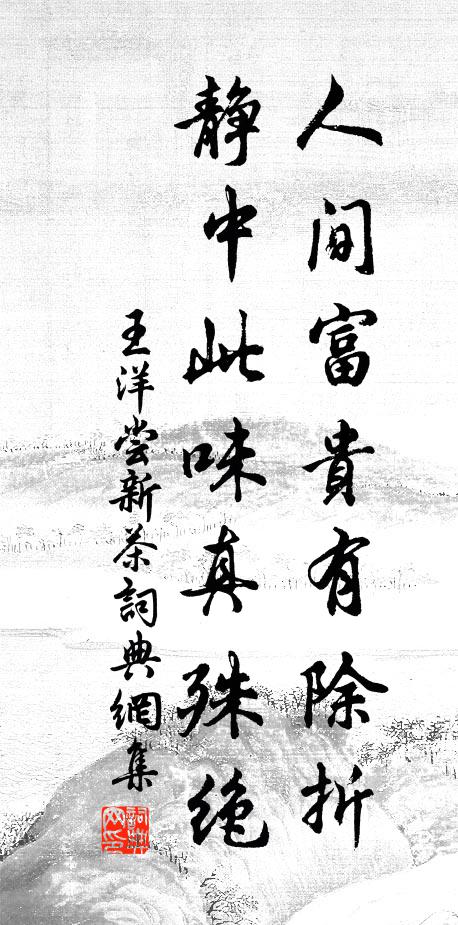 人间富貴有除折
静中此味真殊绝
王洋尝新茶詞典網集